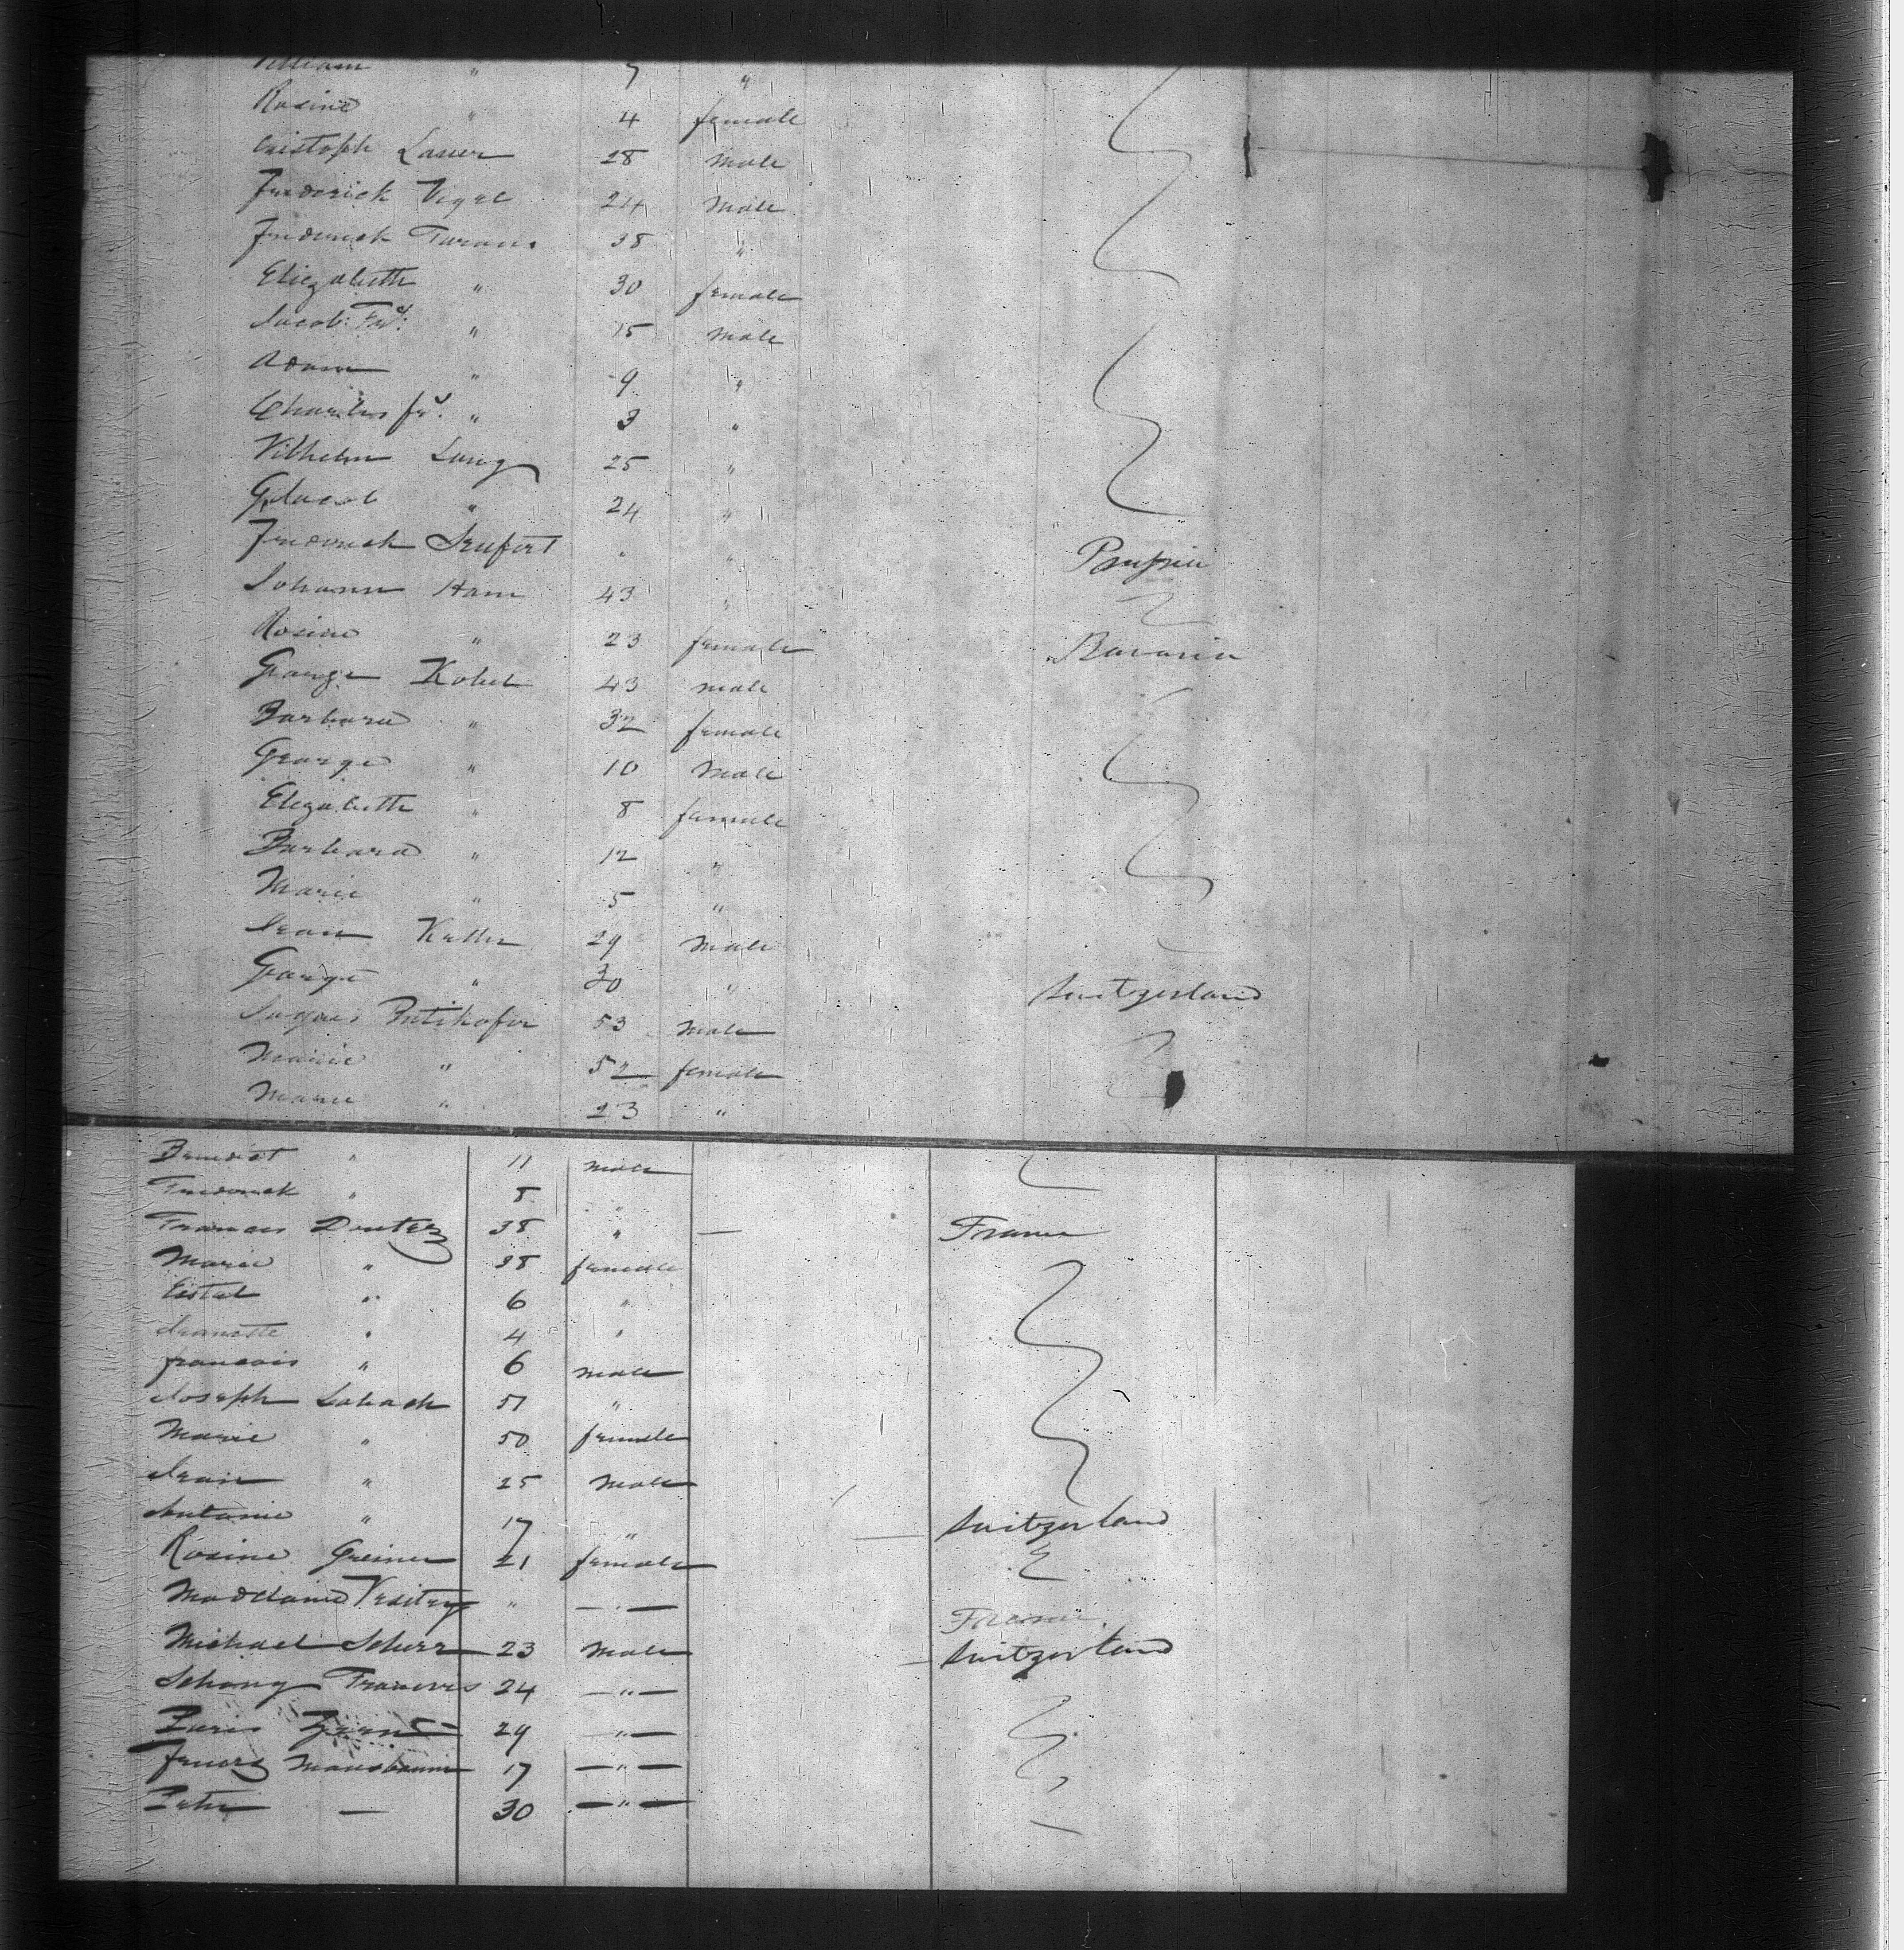 William " 7 "
Rosine " 4 female
Cristoph Lauer 28 male
Frederick Vogel 24 male
Frederick 38 "
Eliezabeth " 30 female
Jacob Frd: " 15 male
Adam " 9 "
Charles frd. " 3 "
Vilhelm Lang 25 "
G. Jacob " 24 "
Frederick Seufert " " Prussia
Johann Ham 43 "
Rosine " 23 female Bavaria
George Kobel 43 male
Barbara " 32 female
George " 10 male
Elizabeth " 8 female
Barbara " 12 "
Marie " 5 "
Jean Keller 29 male
George " 30 " Switzerland
Jaques 53 male
Marie " 52 female
Marie " 23 "
Benedict " 11 male
Frederick " 8 "
Francis 38 " — France
Marie " 38 female
" 6 "
Jeanette " 4 "
francois " 6 male
Joseph 51 "
Marie " 50 female
Jean " 25 male
Antonie " 17 " Switzerland
Rosine Greiner 21 female
" — " — France
Michael Scherr 23 male Switzerland
24 — " —
29 — " —
Mausbaum 17 — " —
Peter — 30 — " —